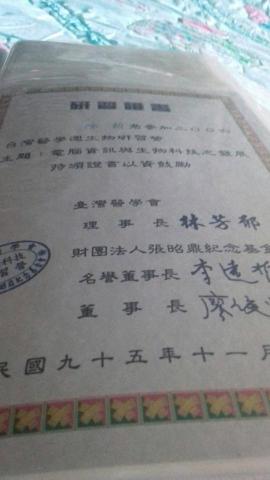 研習證書
君參加二00六
台灣醫學週生物研習營
主題：電腦資訊與生物科技之發展
特頒證書以資鼓勵
臺灣醫學會
理事長 林芳郁
財團法人張昭鼎紀念基金
名譽董事長 李遠哲
董事長 廖俊
科技
習營
民國九十五年十一月